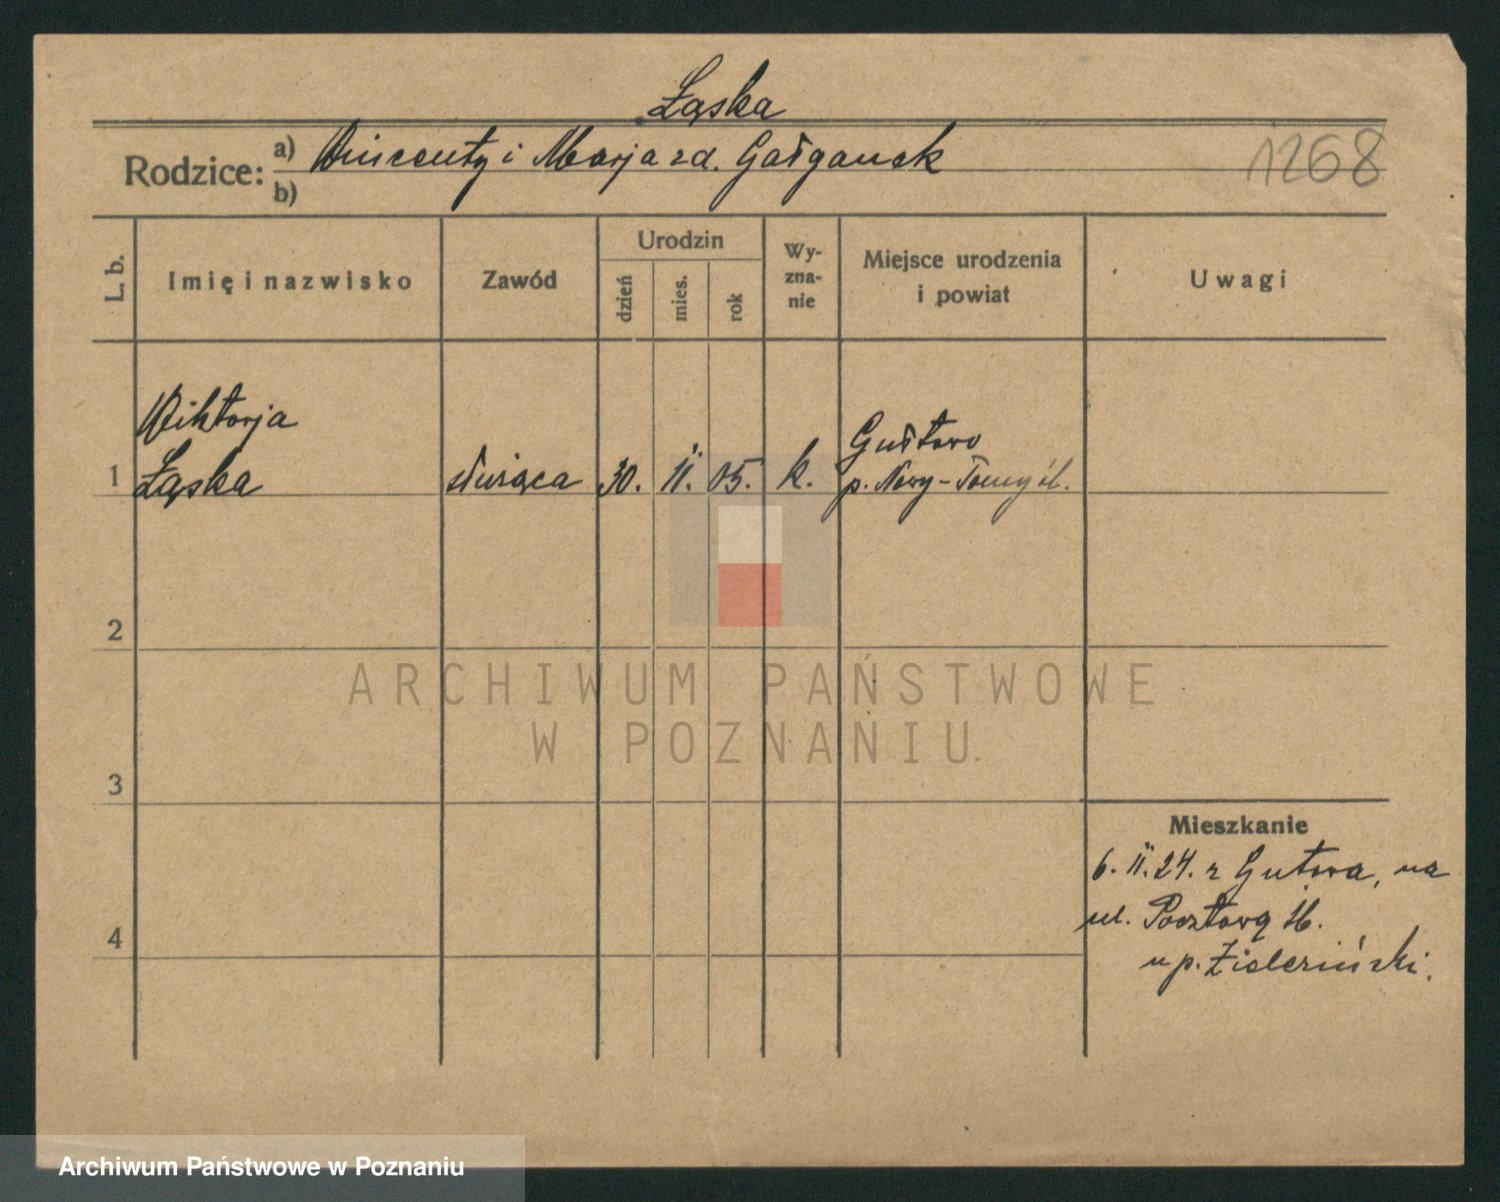 Łąska
Rodzice: a) Wincenty i Marja zd. Gałganek
b)
1268
L. b.
Imię i nazwisko
Zawód
Urodzin
dzień
mies.
rok
Wy-
zna-
nie
Miejsce urodzenia
i powiat
Uwagi
Wiktorja
1 Łąska służąca 30. 11. 05. k.
p. Nowy-Tomyśl.
2
3
4
ARCHIWUM PAŃSTWOWE
W POZNANIU
Mieszkanie
6. II. 24. z Gutowa, na
ul. Pocztową 16.
u p.
Archiwum Państwowe w Poznaniu